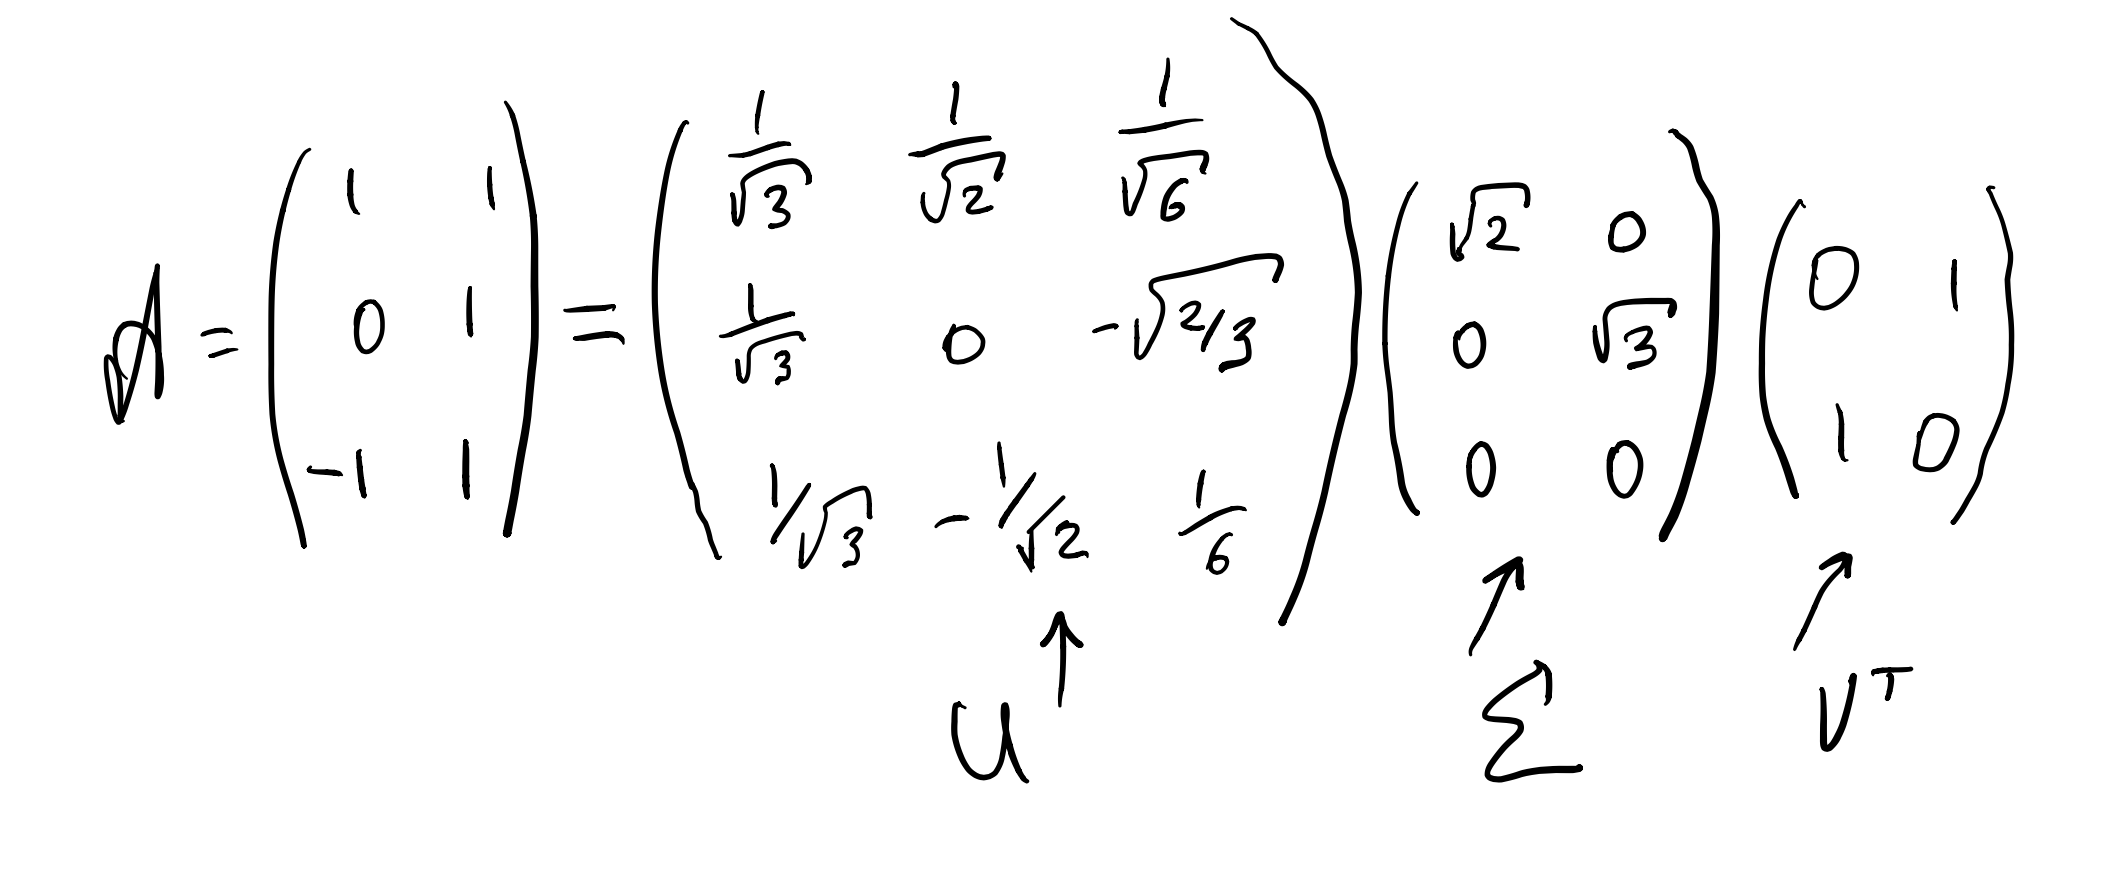 A = ( 1 1 ; 0 1 ; -1 1 ) = ( 1/√3 1/√2 1/√6 ; 1/√3 0 -√2/3 ; 1/√3 -1/√2 1/6 ) ( √2 0 ; 0 √3 ; 0 0 ) ( 0 1 ; 1 0 )
U Σ V^T